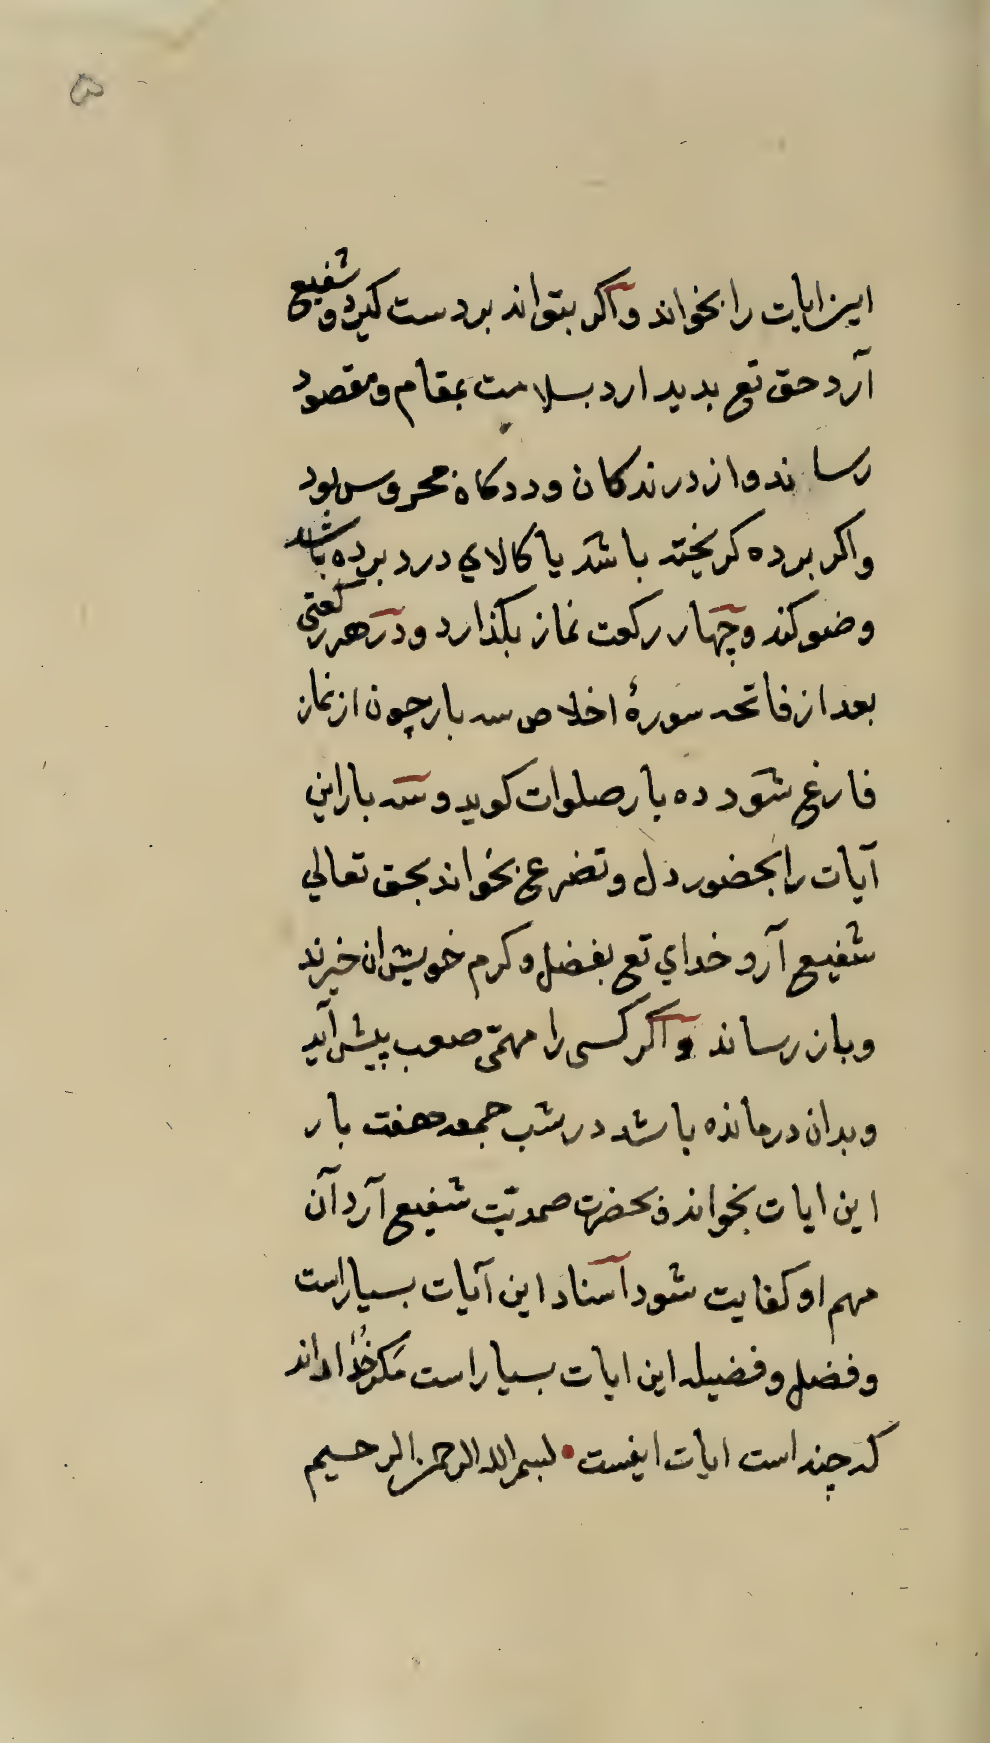 ۵
این ایات را بخواند و اکر بتواند بر دست کیرد و شفیع
آرد حق تع بدید ارد بسلامت بمقام و مقصود
رساند و از درندکان و ددکان محروس بود
و اکر برده کریخته باشد یا کالاي درد برده باشد
وضو کند و چهار رکعت نماز بکذارد و در هر رکعتی
بعد از فاتحه سورۀ اخلاص سه بار چون از نماز
فارغ شود ده بار صلوات کوید و سه بار این
آیات را بحضور دل و تضرع بخواند بحق تعالي
شفیع آرد خداي تع بفضل و کرم خویش ان
و باز رساند و اکر کسی را مهمّی صعب پیش آید
و بدان درمانده باشد در شب جمعه هفت بار
این ایات بخواند بحضرت صمدیّت شفیع آرد آن
مهم او کفایت شود اسناد این آیات بسیار است
و فضل و فضیله این ایات بسیار است مکر خدا داند
که چند است ایات اینست • بسم الله الرحمن الرحیم